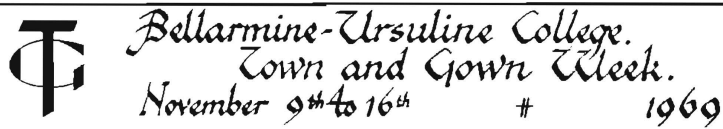 TG
Bellarmine-Ursuline College.
Town and Gown Week.
November 9th to 16th # 1969